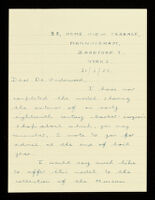 HOME VIEW TERRACE,
MANNINGHAM,
BRADFORD 8.
YORKS.
Dear Dr. Underwood,
I have now
completed the model showing
the interior of an early
eighteenth century
shop about which, you may
remember, I wrote to you for
advice at the end of last
year.
I would very much like
to offer this model to the
collection of the Museum